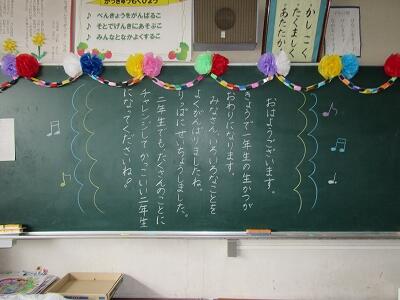 がっきゅうもくひょう
♪ べんきょうをがんばるこ
♪ そとでげんきにあそぶこ
♪ みんなとなかよくするこ
かしこく
たくましく
あたたか
おはようございます。
きょうで一年生の生かつが
おわりになります。
みなさん、いろいろなことを
よくがんばりましたね。
りっぱにせいちょうしました。
二年生でも、たくさんのことに
チャレンジして かっこいい二年生
になってくださいね!